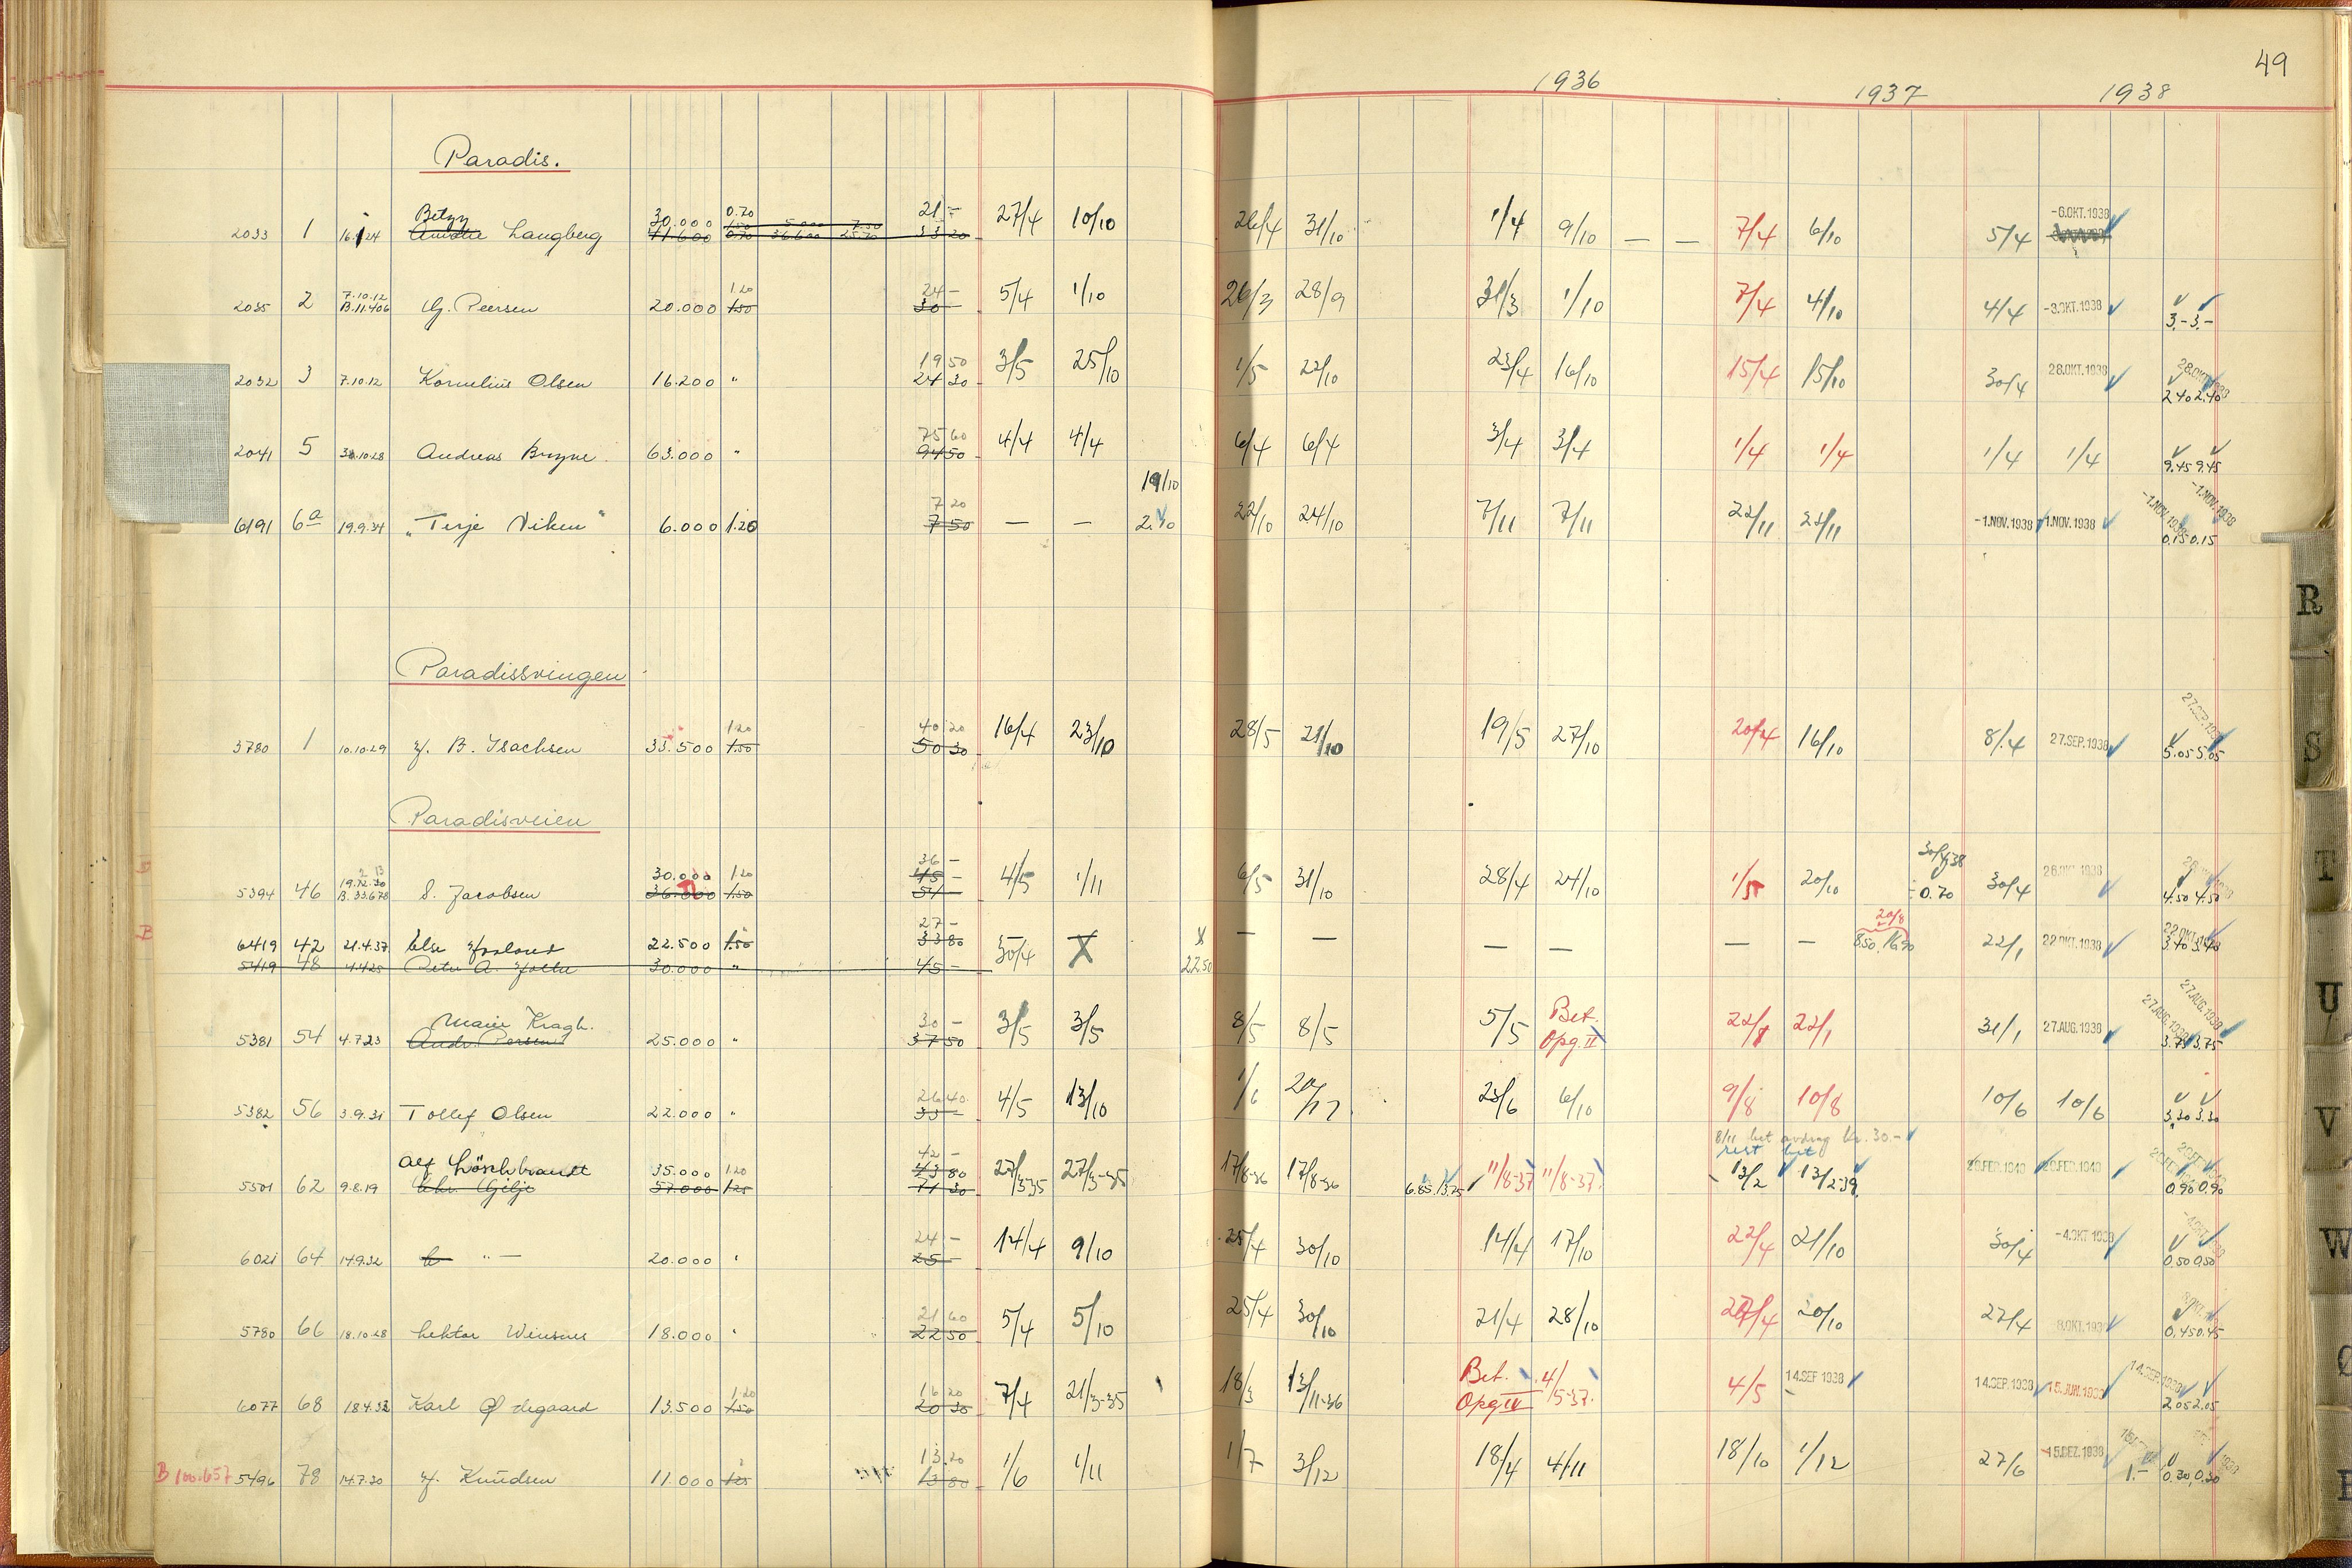 49
1936 1937 1938
Paradis.
Betzy 30.000 0.70 21 -
2033 1 16.1.24 Langberg 11.600 0.70 36.600 25.70 33 20 27/4 10/10 26/4 31/10 1/4 9/10 — — 7/4 6/10 5/4 -6.OKT.1938
7.10.12 1.20 24 -
2035 2 B.11.406 G. Peersen 20.000 1.50 30 - 5/4 1/10 26/3 28/9 31/3 1/10 7/4 4/10 4/4 -3.OKT.1938 3.- 3.-
19 50
2032 3 7.10.12 Kornelius Olsen 16.200 " 24 30 3/5 25/10 1/5 22/10 23/4 16/10 15/4 15/10 30/4 28.OKT.1938 28.OKT.1938 2.40 2.40
75 60
2041 5 30.10.28 Andreas Bryne 63.000 " 94 50 4/4 4/4 6/4 6/4 3/4 3/4 1/4 1/4 1/4 1/4 9.45 9.45
7 20 19/10
6191 6a 19.9.34 „Terje Viken" 6.000 1.20 7 50 — — 2.30 22/10 24/10 7/11 7/11 22/11 22/11 -1.NOV.1938 1.NOV.1938 -1.NOV.1938 -1.NOV.1938 0.15 0.15
Paradissvingen
1.20 40 20
3780 1 10.10.29 B. Isachsen 33.500 1.50 50 30 16/4 23/10 28/5 21/10 19/5 27/10 20/4 16/10 8/4 27.SEP.1938 27.SEP.1938 5.05 5.05
Paradisveien
30.000 1.20 36 - 45 - 30/4 38
5394 46 19.12.30 B. 33.678 S. Jacobsen 36.000 1.50 54 - 4/5 1/11 6/5 31/10 28/4 24/10 1/5 20/10 0.70 30/4 4.50 4.50
27 - 20/8
6419 42 21.4.37 Else 22.500 1.50 33 80 — — — — — — — 8.50 16.90 22/1 22.OKT.1938 22.OKT.1938 3.40 3.40
5419 48 4.4.25 30.000 " 45 - 30/4 X 22.50
Marie Kragh. 30 - Bet.
5381 54 4.7.23 25.000 " 37 50 3/5 3/5 8/5 8/5 5/5 Opg. II 22/1 22/1 31/1 27.AUG.1938 27.AUG.1938 27.AUG.1938 3.75 3.75
26 40
5382 56 3.9.31 Tollef Olsen 22.000 " 33 - 4/5 13/10 1/6 20/12 23/6 6/10 9/8 10/8 10/6 10/6 3.30 3.30
8/11 bet avdrag kr. 30.-
rest bet
Alf Löschbrandt 35.000 1.20 42 - 43 80
5501 62 9.8.19 Chr. Gilje 57.000 1.25 71 30 27/3-35 27/3-35 17/8-36 17/8-36 6.85 13.75 11/8-37 11/8-37 13/2 13/2-39 0.90 0.90
24 -
6021 64 14.9.32 " — 20.000 " 25 - 14/4 9/10 25/4 30/10 14/4 17/10 22/4 21/10 30/4 -4.OKT 1938 0.50 0.50
21 60
5780 66 18.10.28 18.000 " 22 50 5/4 5/10 25/4 30/10 21/4 28/10 27/4 20/10 22/4 0.45 0.45
1.20 16 20 Bet.
6077 68 18.4.32 Karl Ødegaard 13.500 1.50 20 30 7/4 21/3-35 18/3 13/11-36 Opg IV 4/5-37 4/5 14.SEP 1938 14.SEP.1938 14.SEP.1938 2.05 2.05
13.20
B 100.657 5496 78 14.7.20 Knudsen 11.000 1.25 13 80 1/6 1/11 1/7 3/12 18/4 4/11 18/10 1/12 27/6 15.DEZ.1938 1.- 0.30 0.30
R
S
T
U
V
W